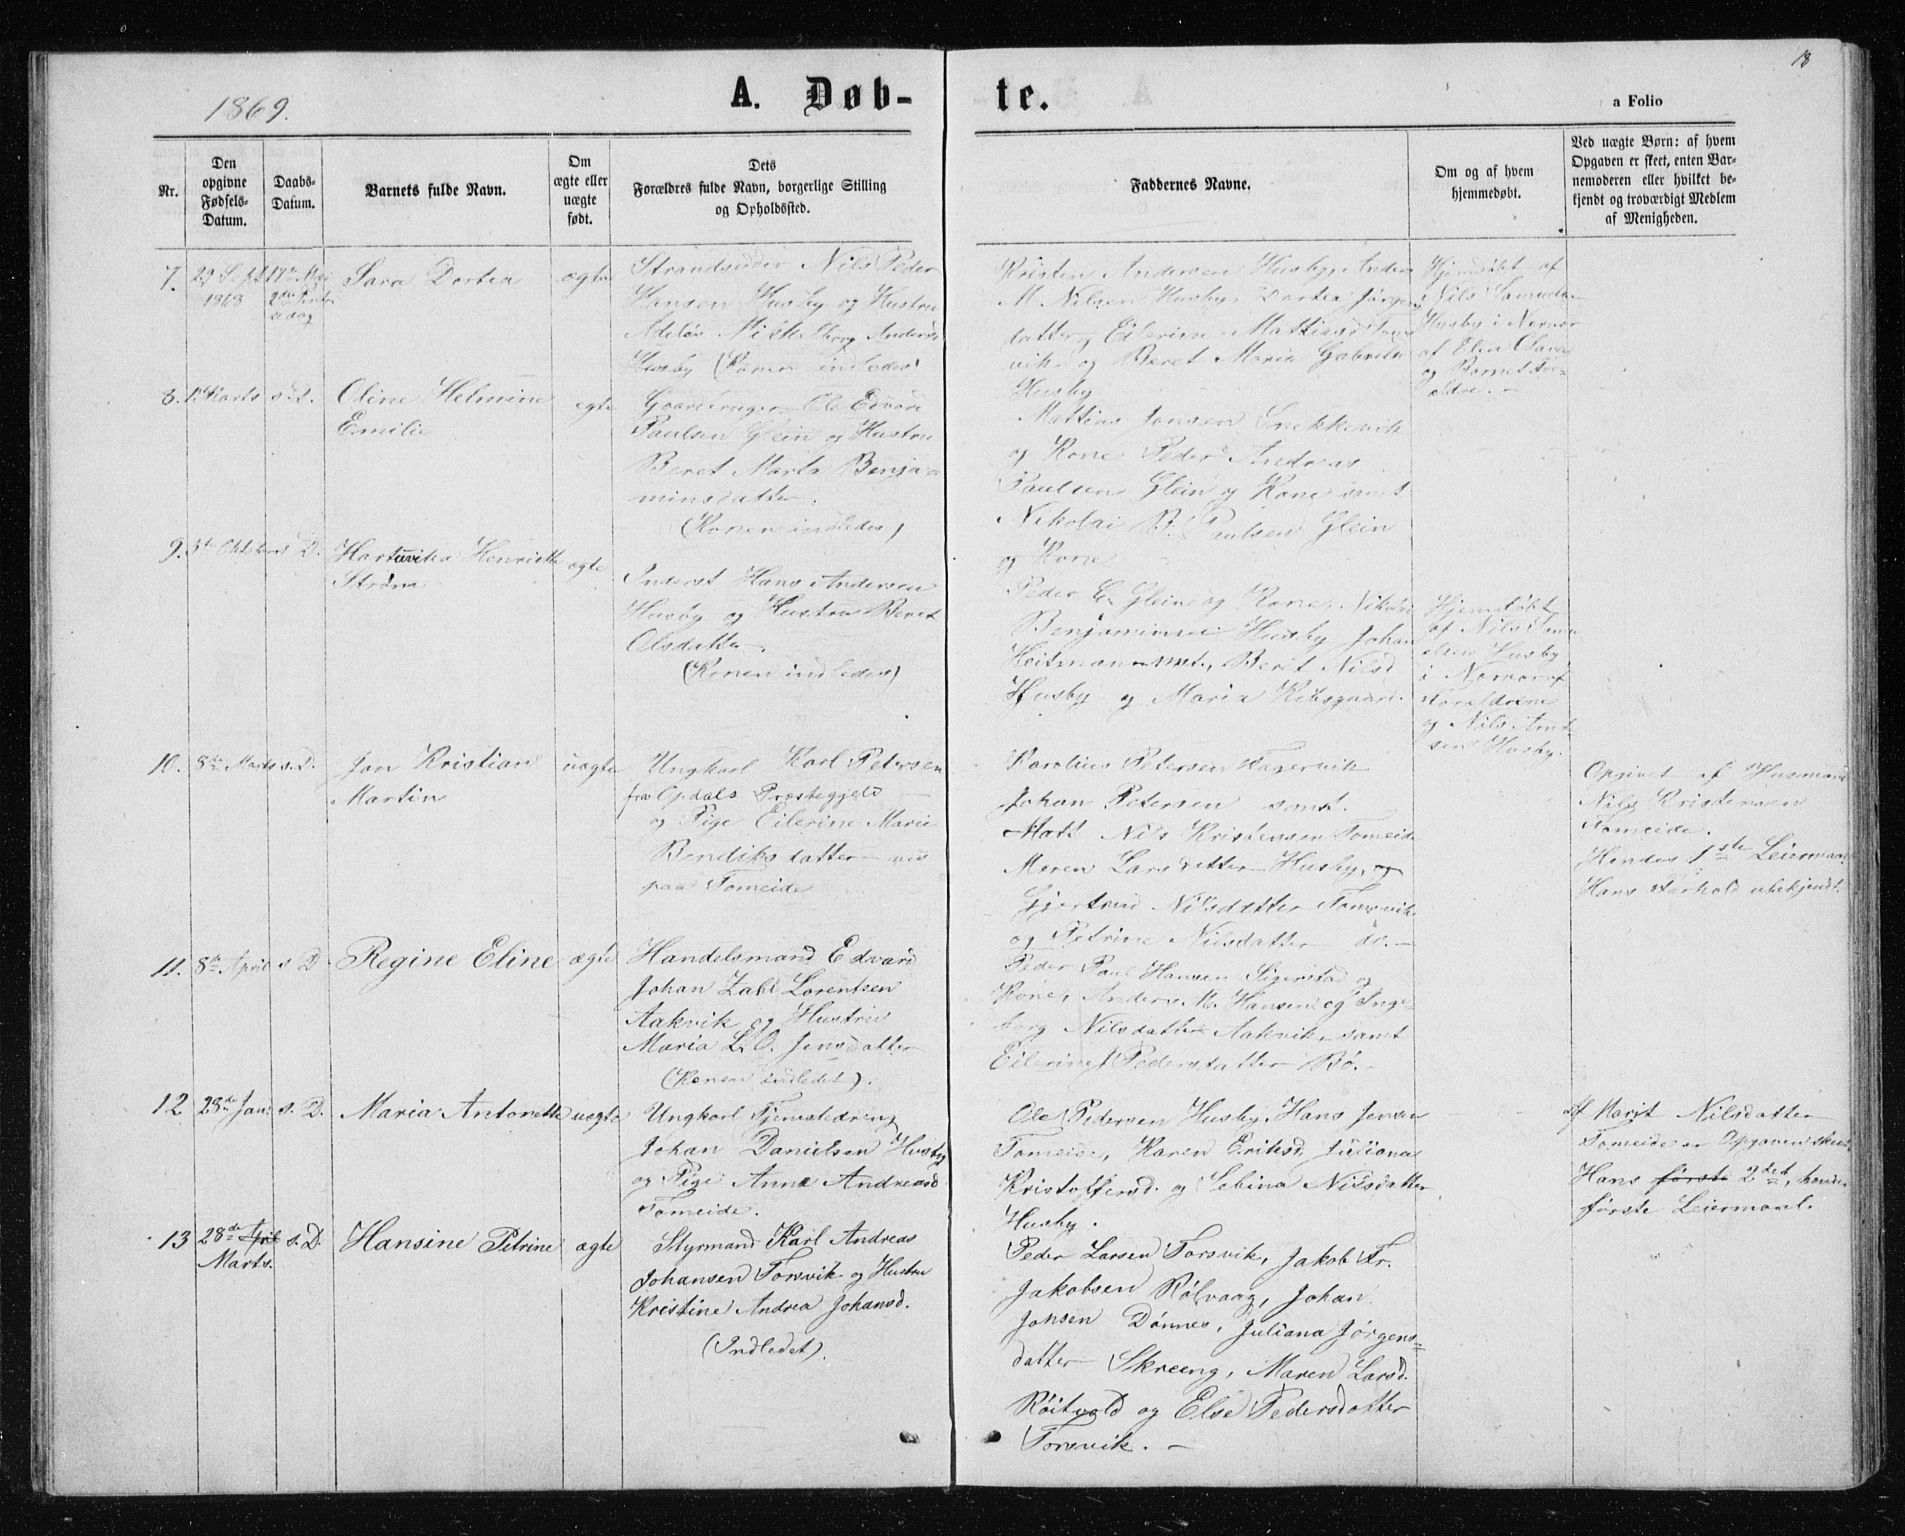 18
1869.
A. Døb-
te.
a Folio
Nr.
Den
opgivne
Fødsels-
Datum.
Daabs-
Datum.
Barnets fulde Navn.
Om
ægte eller
uægte
født.
Dets
Forældres fulde Navn, borgerlige Stilling
og Opholdssted.
Faddernes Navne.
Om og af hvem
hjemmedøbt.
Ved uægte Børn: af hvem
Opgaven er skeet, enten Bar-
nemoderen eller hvilket be-
kjendt og troværdigt Medlem
af Menigheden.
7.
29 Sept
1868
17de Mai
2den Pintse
dag
Sara Dortea
ægte
Strandsidder Nils Peder
Hansen Husby og Hustru
Anders
Husby (Konen indledes)
Kristen Andersen Husby, Anders
M Nilsen Husby, Dortea Jørgens
datter, Eilerine Mattisd. Tores
vik og Beret Maria Gabrielsd
Husby
Hjemdøbt af
Nils Samuelsen
Husby i Nærvær
af Elen Olava
og Barnets For=
ældre. -
8.
1 Marts
s. D.
Oline Helmine
Emilie
egte
Gaardbruger Ole Edvard
Paulsen Glein og Hustru
Beret Marta Benja=
minsdatter.
(Konen indledes)
Mattias Jonsen Snekkevik
og Kone Peder Andreas
Paulsen Glein og Kone samt
Nikolai B. Paulsen Glein
og Kone
9.
5te Oktober
s D.
Hartvika Henriette
Strøm
ægte
Inderst Hans Andersen
Husby og Hustru Beret
Olsdatter.
(Konen indledes)
Peder C. Glein og Kone, Nikolai
Benjaminsen Husby Johan
Heitmann samt, Berit Nilsd
Husby og Maria
Hjemdøbt
af Nils Samu
elsen Husby
i Nærvær af
Foreldrene
og Nils Arnt
sen Husby.
10.
8de Marts
s. D.
Jon Kristian
Martin
uægte
Ungkarl Karl Petersen
fra Opdals Prestegjeld -
og Pige Eilerine Marie
Bendiksdatter
paa Tomeide
Karolius Petersen Fagervik
Johan Petersen samt
Mart Nils Kristensen Tomeide
Maren Larsdatter Husby, og
Gjertrud Nilsdatter Forsvik
og Petrine Nilsdatter do. -
Opgivet af Husmand
Nils Kristensen
Tomeide.
Hendes 1ste Leiermaal
Hans Forhold ubekjendt.
11.
8de April
s D.
Regine Eline
ægte
Handelsmand Edvard
Johan Zahl Lorentsen
Aakvik og Hustru
Maria L. O. Jensdatter
(Konen indledet).
Peder Paul Hansen Sigerstad og
Kone, Anders M. Hansen og Inge=
borg Nilsdatter Aakvik samt
Eilerine Pedersdatter Bø. -
12
28de Jan.
s. D.
Maria Antonette
uægte
Ungkarl Tjenestedreng
Johan Danielsen Husby
og Pige Anne Andreasd
Tomeide.
Ole Pedersen Husby, Hans Jensen
Tomeide, Karen Eriksd, Juliana
Kristoffersd. og Sebina Nilsdatter
Husby.
Af Marit Nilsdatter
Tomeide er Opgaven skeet
Hans første 2det, hendes
første Leiermaal.
13
28de April
Marts.
s. D.
Hansine Petrine
ægte
Styrmand Karl Andreas
Johansen Forsvik og Hustru
Kristine Andrea Johansd.
(Indledet).
Peder Larsen Forsvik, Jakob Fr.
Jakobsen Rølvaag, Johan
Jonsen Dønnes, Juliana Jørgens=
datter Skreeng, Maren Larsd.
Røitvold og Else Pedersdatter
Forsvik. -